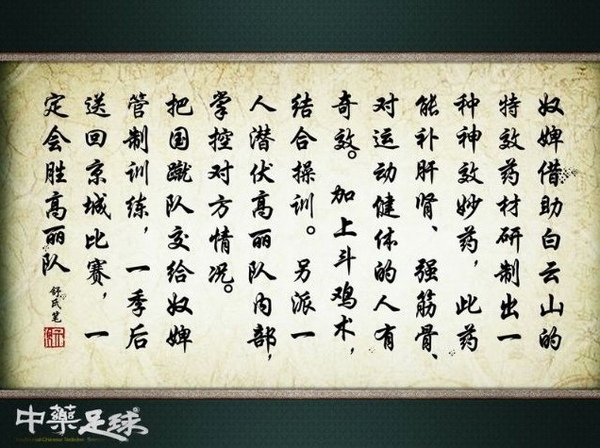 奴婢借助白云山的
特效药材研制出一
种神效妙药，此药
能补肝肾、强筋骨、
对运动健体的人有
奇效。加上斗鸡术，
结合操训。另派一
人潜伏高丽队内部，
掌控对方情况。
把国蹴队交给奴婢
管制训练，一季后
送回京城比赛，一
定会胜高丽队
舒氏笔
中藥足球